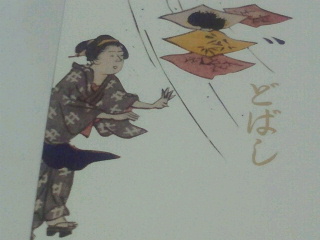 どばし